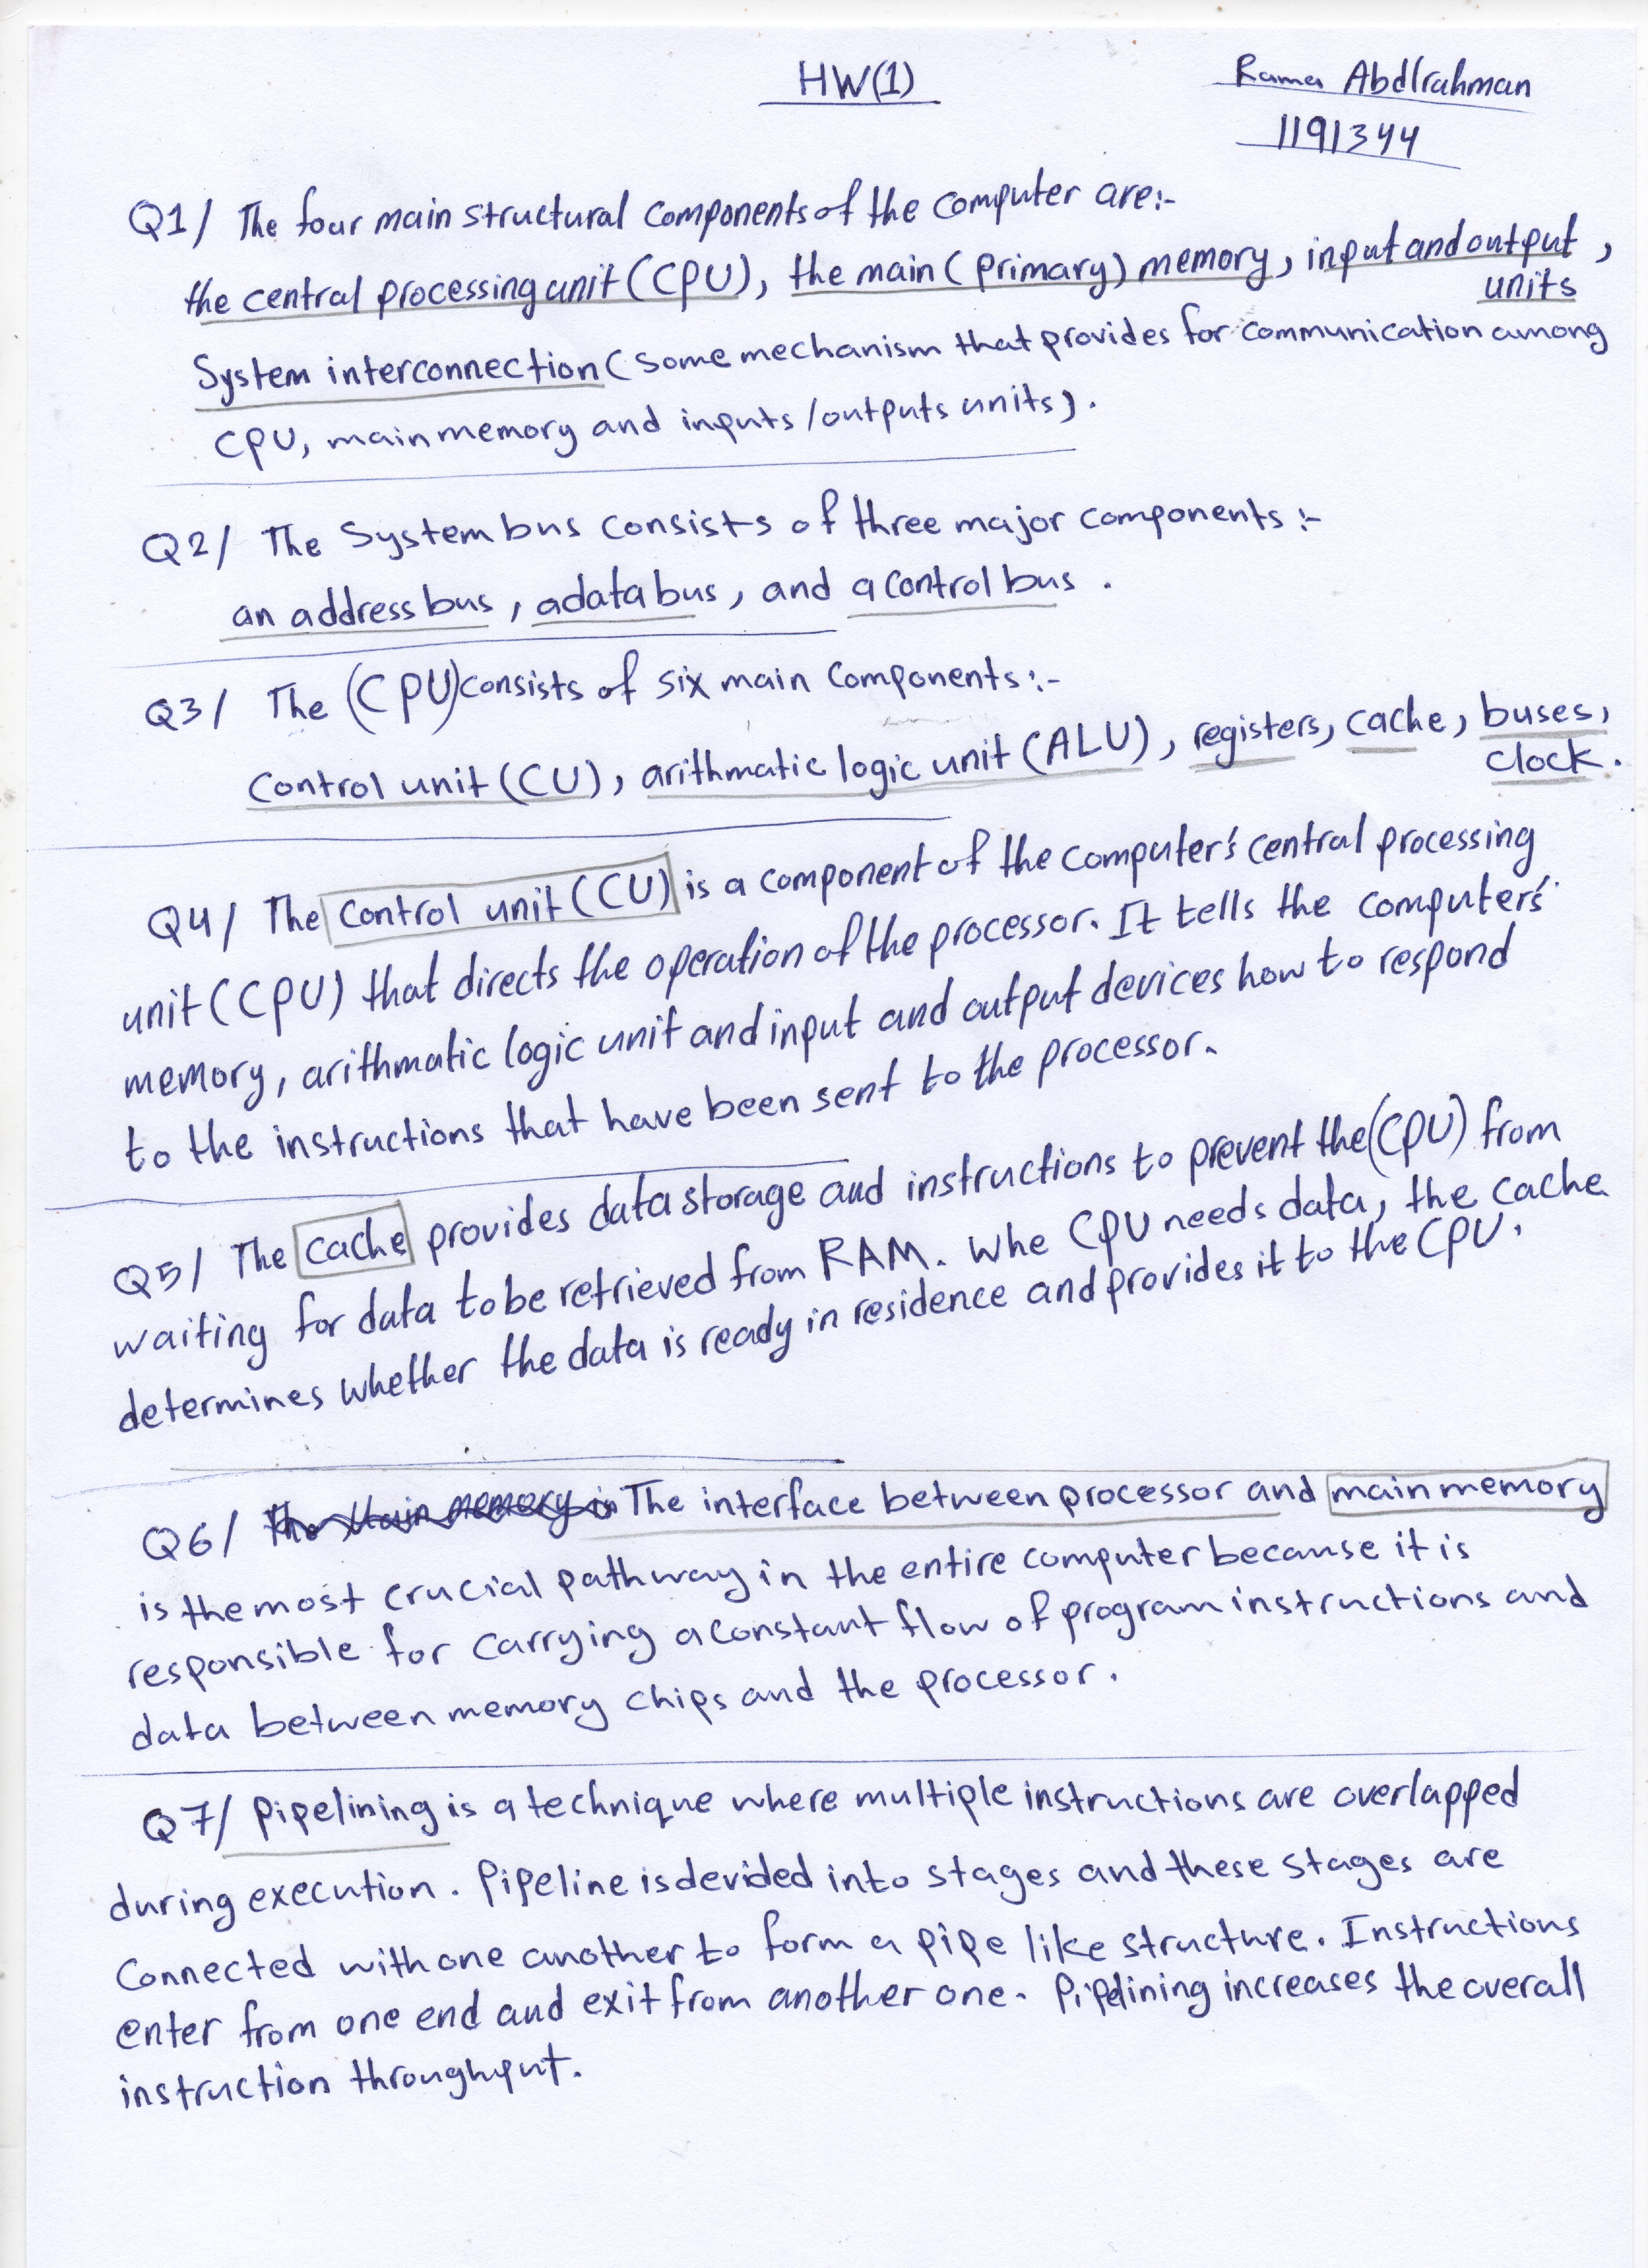 HW(1)
Rama Abdlrahman
1191344
Q1/ The four main structural components of the computer are:-
the central processing unit (CPU), the main (primary) memory, input and output,
units
System interconnection (some mechanism that provides for communication among
CPU, main memory and inputs/outputs units).
Q2/ The System bus consists of three major components:-
an address bus, a data bus, and a control bus.
Q3/ The (CPU) consists of six main components:-
Control unit (CU), arithmatic logic unit (ALU), registers, cache, buses,
clock.
Q4/ The Control unit (CU) is a component of the computer's central processing
unit (CPU) that directs the operation of the processor. It tells the computer's
memory, arithmatic logic unit and input and output devices how to respond
to the instructions that have been sent to the processor.
Q5/ The cache provides data storage and instructions to prevent the (CPU) from
waiting for data to be retrieved from RAM. Whe CPU needs data, the cache
determines whether the data is ready in residence and provides it to the CPU.
Q6/ The Main memory is The interface between processor and main memory
is the most crucial pathway in the entire computer because it is
responsible for carrying a constant flow of program instructions and
data between memory chips and the processor.
Q7/ Pipelining is a technique where multiple instructions are overlapped
during execution. Pipeline is devided into stages and these stages are
Connected with one another to form a pipe like structure. Instructions
enter from one end and exit from another one. Pipelining increases the overall
instruction throughput.